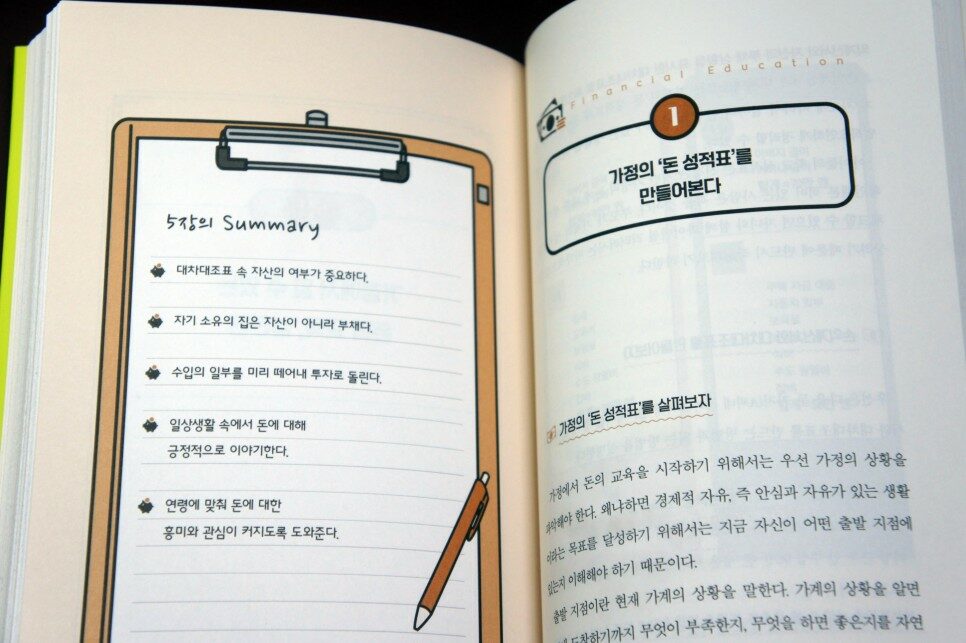 5장의 Summary
대차대조표 속 자산의 여부가 중요하다.
자기 소유의 집은 자산이 아니라 부채다.
수입의 일부를 미리 떼어내 투자로 돌린다.
일상생활 속에서 돈에 대해
긍정적으로 이야기한다.
연령에 맞춰 돈에 대한
흥미와 관심이 커지도록 도와준다.
Financial Education
1
가정의 ‘돈 성적표’를
만들어본다
가정의 ‘돈 성적표’를 살펴보자
가정에서 돈의 교육을 시작하기 위해서는 우선 가정의 상황을
파악해야 한다. 왜냐하면 경제적 자유, 즉 안심과 자유가 있는 생활
이라는 목표를 달성하기 위해서는 지금 자신이 어떤 출발 지점에
있는지 이해해야 하기 때문이다.
출발 지점이란 현재 가계의 상황을 말한다. 가계의 상황을 알면
도착하기까지 무엇이 부족한지, 무엇을 하면 좋은지를 자연